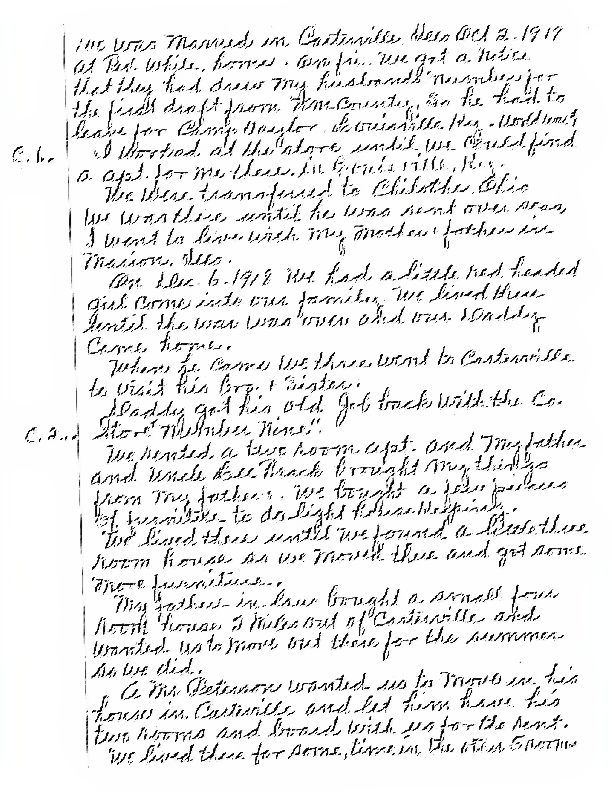 We was Married in Carterville Illes Oct 2. 1917
at Red. While homes. on fri. We got a notice
that they had drew My husbands number for
the first draft from Wm County, So he had to
leave for Camp Taylor Louisville Ky. World War I
C. 1. I worked at the store until we could find
a apt. for me there in Louisville, Ky.
We were transferred to Chilothe, Ohio
We was there until he was sent over seas
I went to live with My Mother & father in
Marion, Illes.
On Dec 6. 1918 We had a little red headed
girl come into our family We lived there
until the war was over and our Daddy
Came home.
When he came We three went to Carterville
to visit his Bro. & Sister.
Daddy got his old Job back With the Co.
C. 2. Store "Number Nine".
We rented a two room apt. and My father
and Uncle brought My things
from My father's. We bought a few pieces
of furniture to do light house keeping.
We lived there until We found a little three
room house so we moved there and got some
More furniture.
My father-in-law bought a small four
room house 2 Miles out of Carterville and
wanted us to Move out there for the summer
so we did.
A Mr Peterson wanted us to Move in his
house in Carterville and let him have his
two rooms and board With us for the rent.
We lived there for some, time, in the other 5 rooms